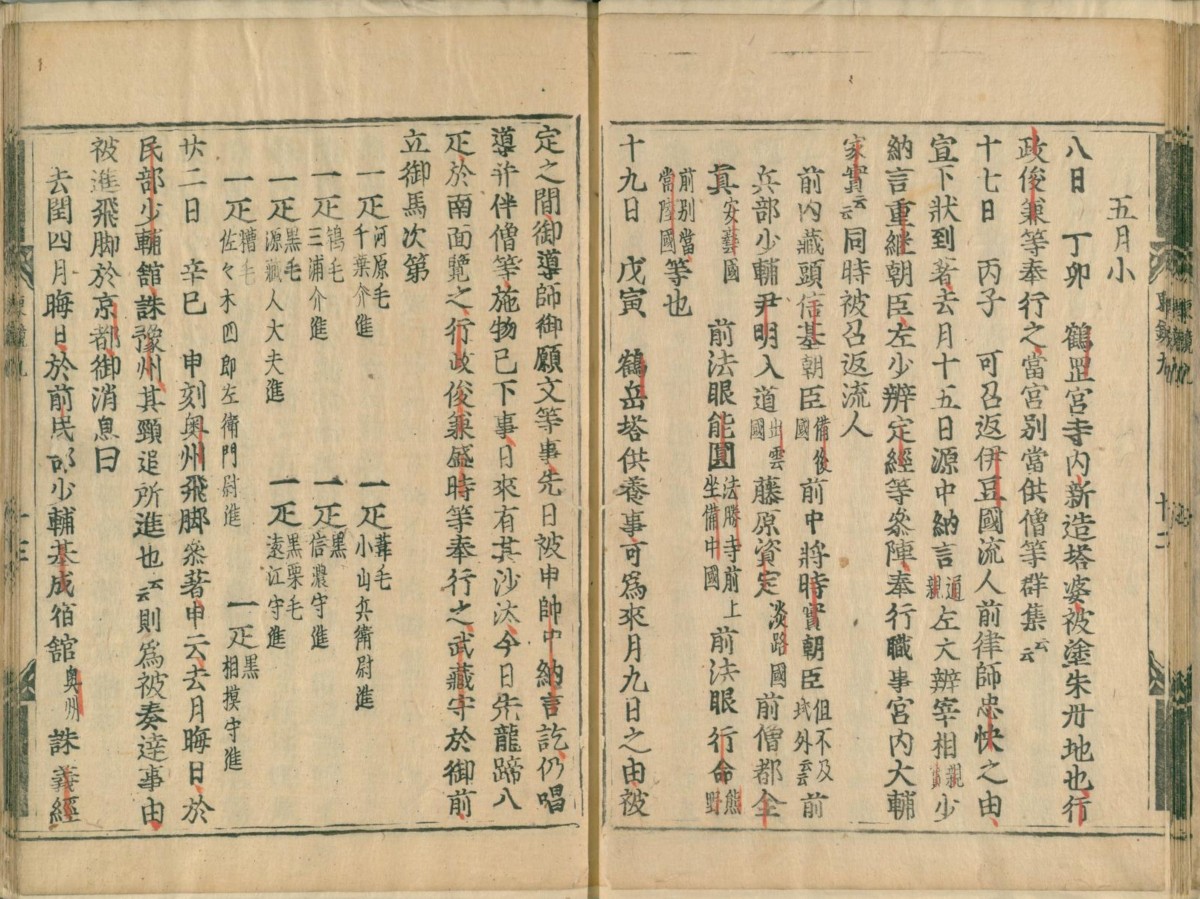 五月小
八日　丁卯　鶴罡宮寺内、新造塔婆被塗朱丹地也、行
政俊兼等奉行之、當宮別當供僧等群集云云
十七日　丙子　可召返伊豆國流人前律師忠快之由、
宣下狀到著、去月十五日源中納言通親左大辨宰相親宗少
納言重継朝臣、左少辨定經等參陣、奉行職事宮内大輔
家實云云同時被召返流人
前内藏頭信基朝臣備後國　前中將時實朝臣但不及武外云云前
兵部少輔尹明入道出雲國　藤原資定淡路國　前僧都全
眞安藝國　前法眼能圓法勝寺前上坐備中國　前法眼行命熊野
前別當常陸國等也
十九日　戊寅　鶴岳塔供養事、可爲來月九日之由被
定之間、御導師御願文等事、先日被申帥中納言訖、仍唱
導并伴僧等施物已下事、日來有其沙汰、今日先龍蹄八
疋、於南面覽之、行政俊兼盛時等奉行之、武藏守於御前
立御馬次第
一疋河原毛千葉介進　一疋葦毛小山兵衛尉進
一疋鴾毛三浦介進　一疋黒信濃守進
一疋黒毛源藏人大夫進　一疋黒栗毛遠江守進
一疋糟毛佐々木四郎左衛門尉進　一疋黒相摸守進
廿二日　辛巳　申刻奥州飛脚參著、申云、去月晦日、於
民部少輔舘誅豫州、其頸追所進也云云則爲被奏達事由、
被進飛脚於京都、御消息曰
去閏四月晦日、於前民部少輔基成宿舘奥州誅義經